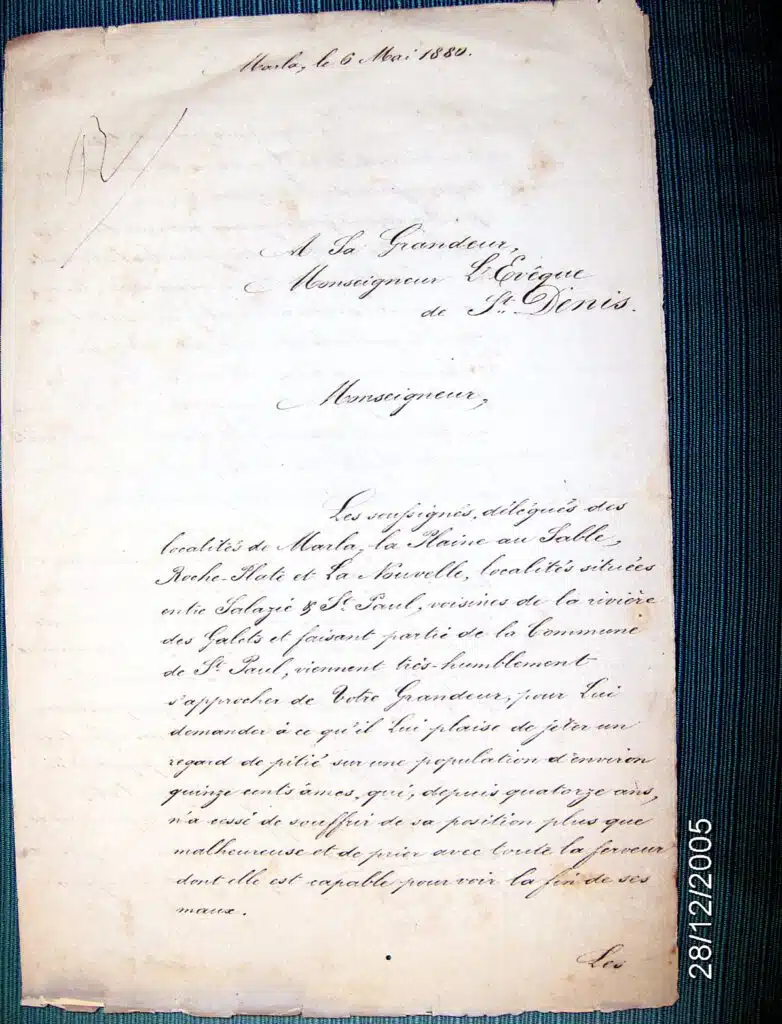 Marla, le 6 Mai 1880.
A Sa Grandeur,
Monseigneur L'Evêque
de St. Denis.
Monseigneur,
Les soussignés, délégués des
localités de Marla, la Plaine au Sable,
Roche-Plate et La Nouvelle, localités situées
entre Salazie & St. Paul, voisines de la rivière
des Galets et faisant partie de la Commune
de St. Paul, viennent très-humblement
s'approcher de Votre Grandeur, pour Lui
demander à ce qu'il Lui plaise de jèter un
regard de pitié sur une population d'environ
quinze cents âmes, qui, depuis quatorze ans,
n'a cessé de souffrir de sa position plus que
malheureuse et de prier avec toute la ferveur
dont elle est capable pour voir la fin de ses
maux.
Les
28/12/2005